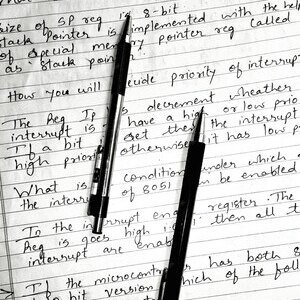 size of SP reg is 8-bit
stack pointer is implemented with the
of special memory pointer reg called
as stack pointer
How you will decide priority of interrupt
The Reg Ip is decrement wheather
interrupt is have a high or low prio
If a bit set then the interrupt
high prior otherwise it has low p
What is condition under which
the interr of 8051 can be enabled
In the interrupt enab register. The
Reg is goes high then all t
interrupt are enab
If the microcontro has both 8
bit version which of the foll